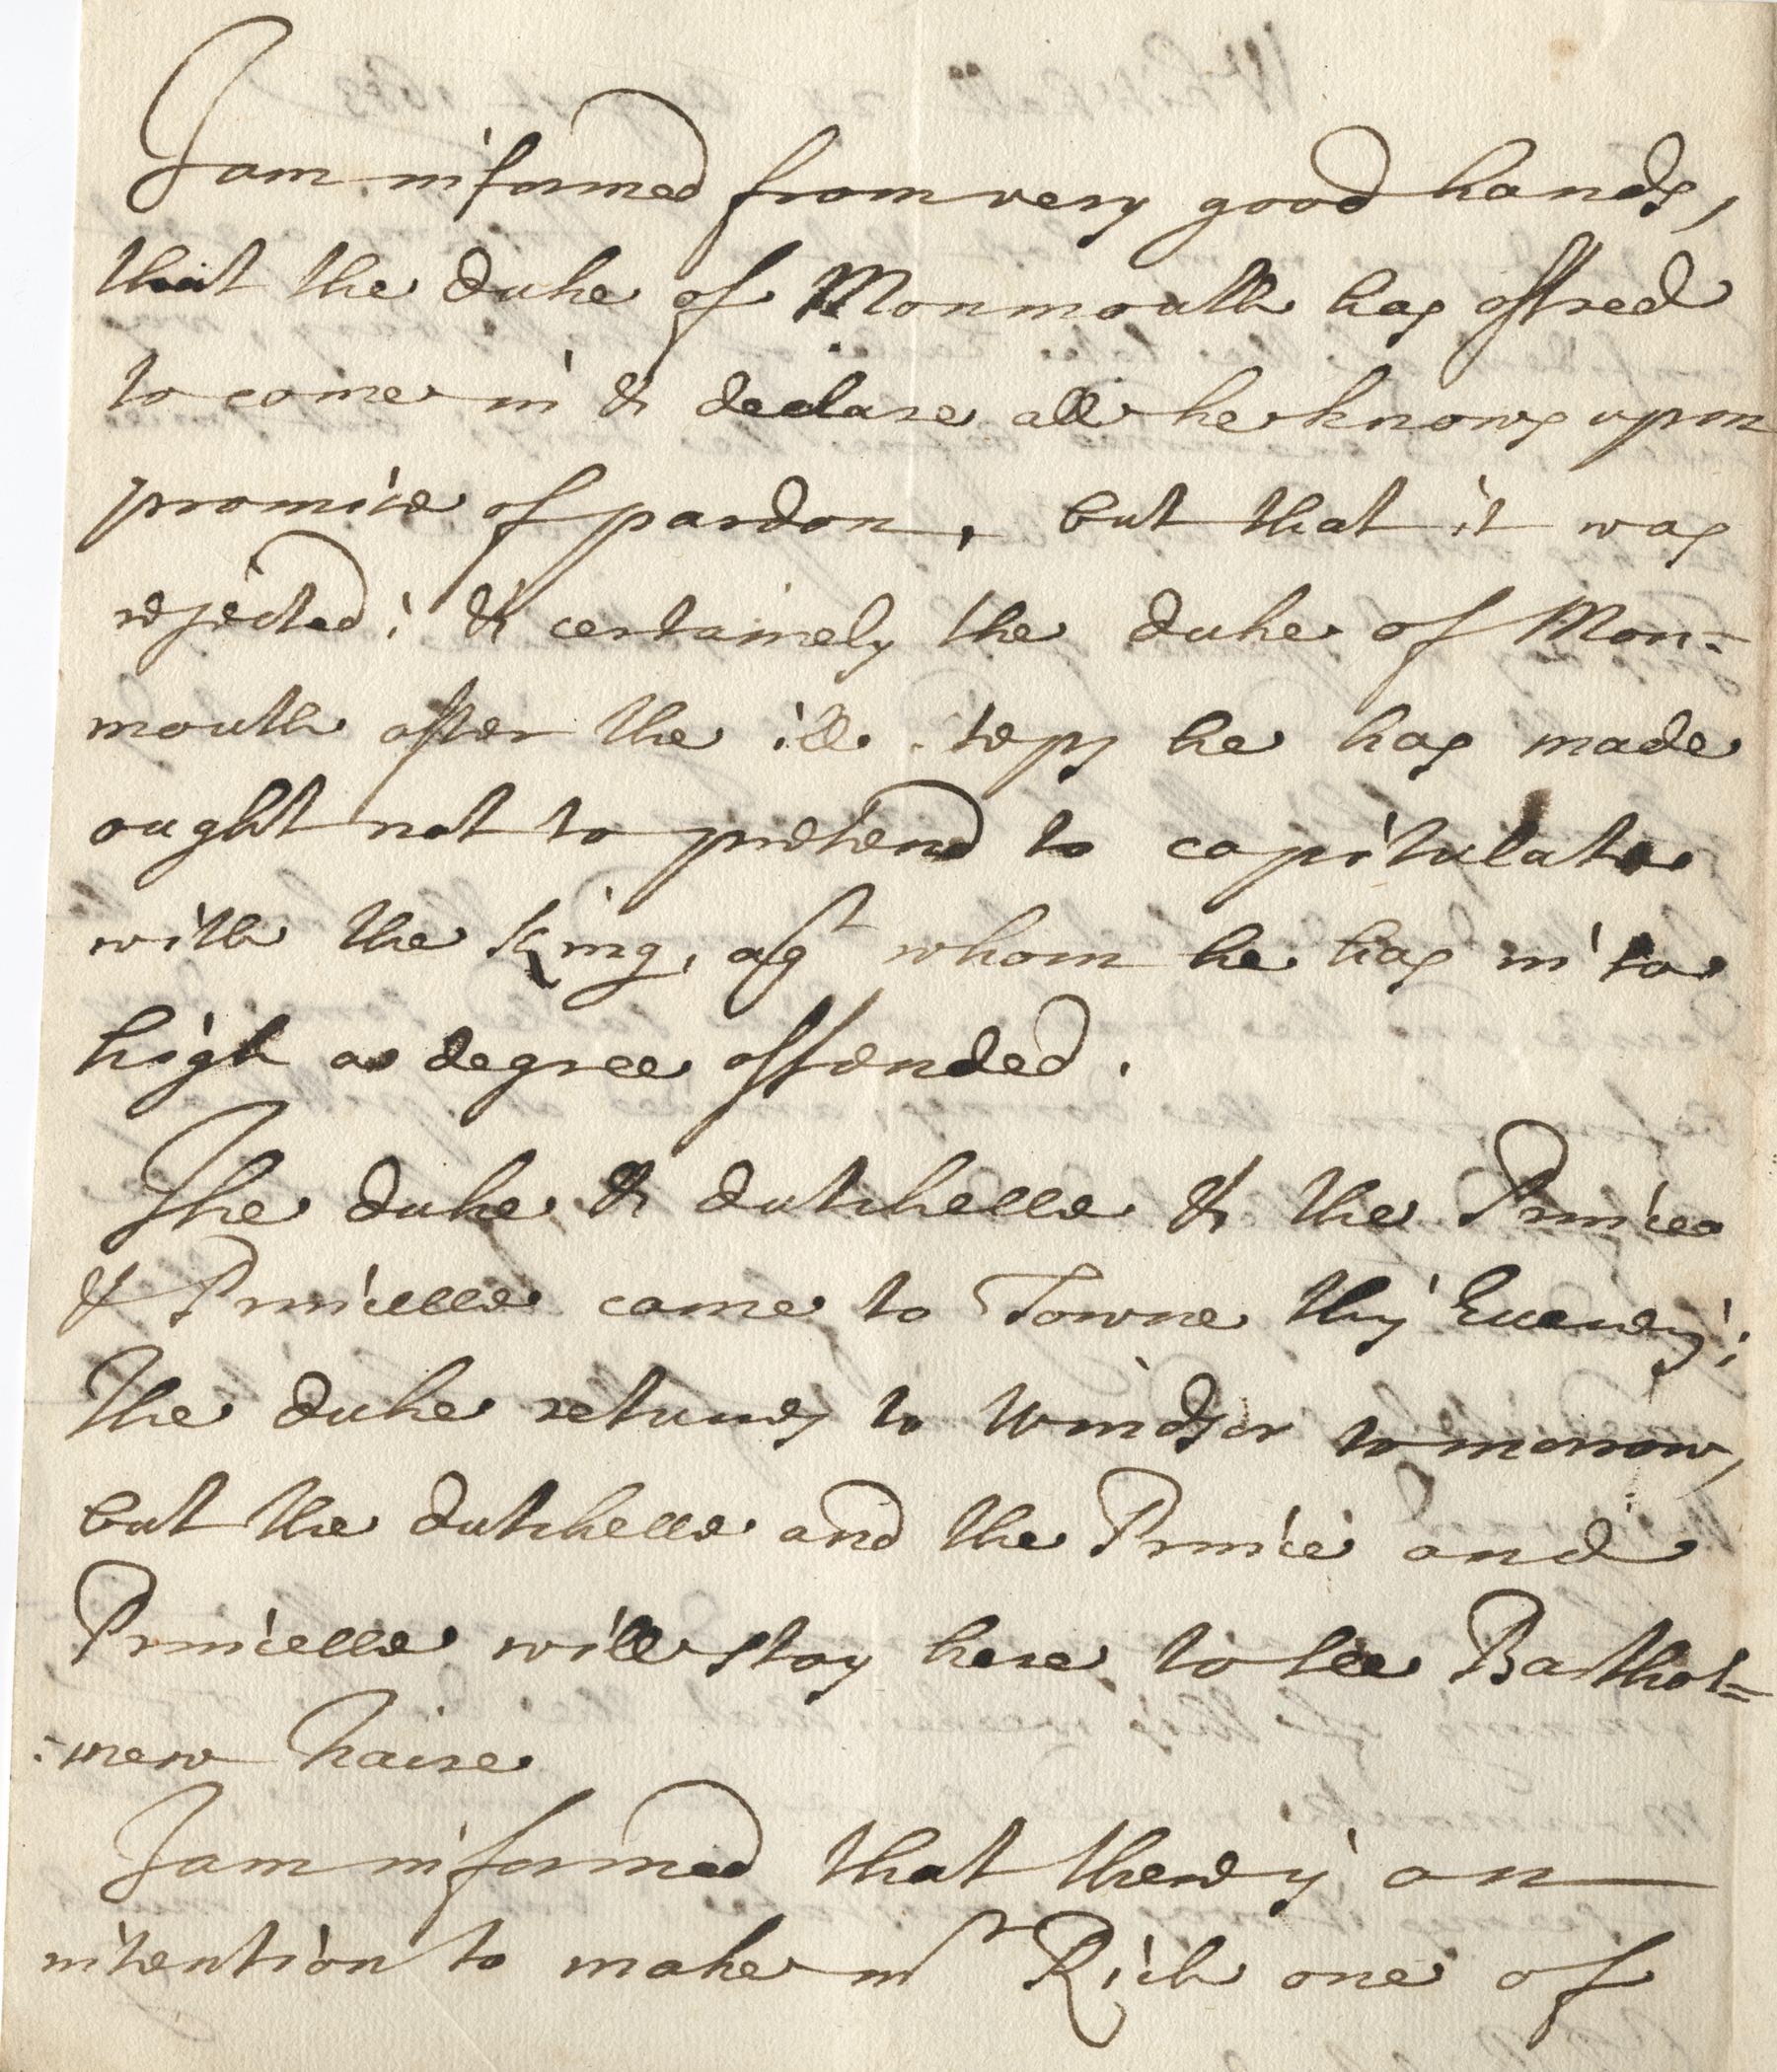 I am informed from very good hands,
that the duke of Monmouth has offred
to come in & declare all he knows upon
promise of pardon, but that it was
rejected; & certainely the duke of Mon=
mouth after the ill steps he has made
ought not to pretend to capitulate
with the King, agst whom he has in so
high a degree offended.
The duke & dutchesse & the Prince
& Princesse came to Towne this Evening;
the duke returnes to Windsor tomorrow,
but the dutchesse and the Prince and
Princesse will stay here to see Barthol=
:mew ffaire
I am informed that there is an
intention to make Mr Rich one of